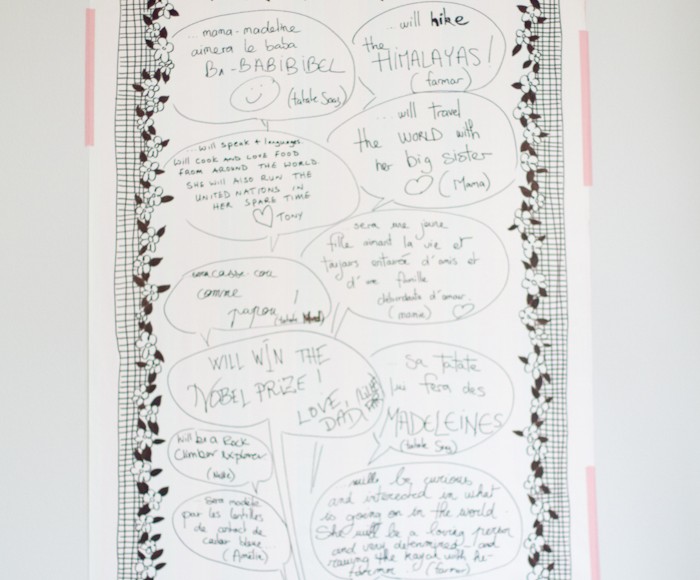 ...mama-madeline
aimera le baba
BA-BABIBIBEL
(tatate Soas)
...will hike
the
HIMALAYAS!
(farmar)
...will travel
the WORLD with
her big sister
(Mama)
...will speak 4 languages.
will COOK AND LOVE FOOD
FROM AROUND THE WORLD
SHE WILL ALSO RUN THE
UNITED NATIONS IN
HER SPARE TIME
TONY
sera une jeune
fille aimant la vie et
toujours entourée d'amis et
d'une famille
débordante d'amour.
(mamie)
une casse-cou
comme
papou!
(tatate
WILL WIN THE
NOBEL PRIZE!
LOVE,
DAD
...Sa tatate
lui fera des
MADELEINES
(tatate Soas)
will be a Rock
Climber Explorer
sera modèle
pour les lentilles
de contact de
(Amélia)
...will be curious
and interested in what
is going on in the world
She will be a loving person
and very determined and
the kayak with
(farmor)